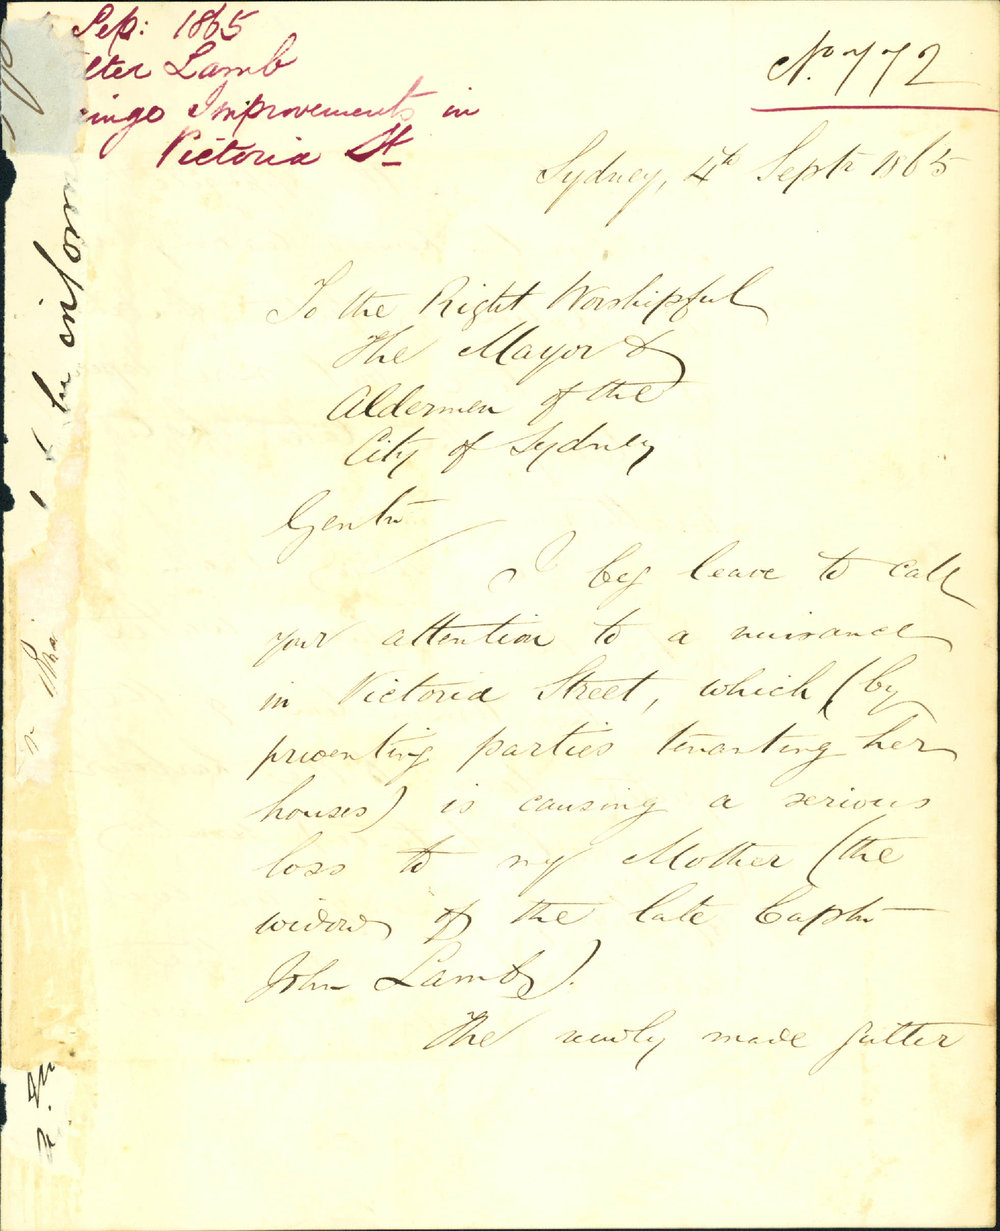 Sep: 1865
Lamb
Improvements in
Victoria St
No. 772
Sydney, 4th Septr 1865
To the Right Worshipful
The Mayor &
Aldermen of the
City of Sydney
Gentn
I beg leave to call
your attention to a nuisance
in Victoria Street, which (by
preventing parties tenanting her
houses) is causing a serious
loss to my Mother (the
widow of the late Captn
John Lamb).
The newly made gutter
be inform